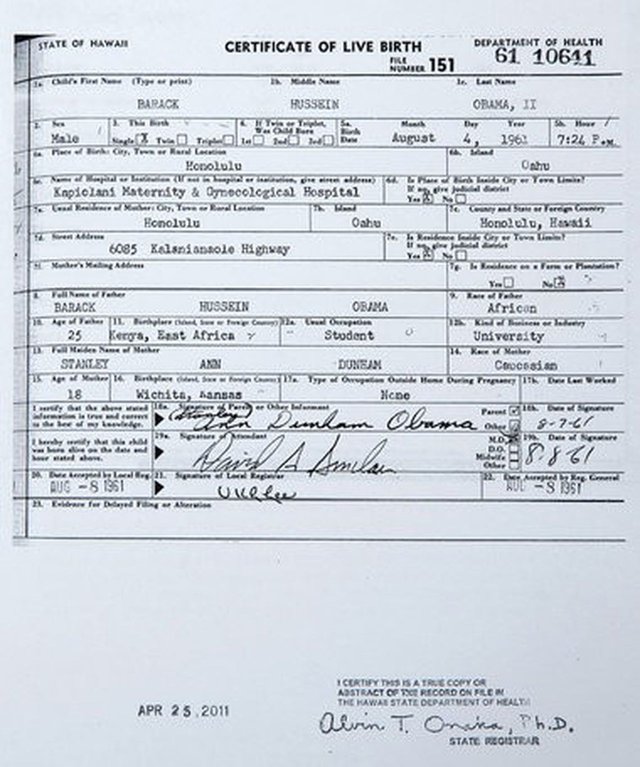 STATE OF HAWAII CERTIFICATE OF LIVE BIRTH DEPARTMENT OF HEALTH
FILE NUMBER 151 61 10641
1a. Child's First Name (Type or print) 1b. Middle Name 1c. Last Name
BARACK HUSSEIN OBAMA, II
2. Sex 3. This Birth 4. If Twin or Triplet, Was Child Born 5a. Birth Date Month Day Year 5b. Hour
Male Single X Twin Triplet 1st 2nd 3rd August 4, 1961 7:24 P.M.
6a. Place of Birth: City, Town or Rural Location 6b. Island
Honolulu Oahu
6c. Name of Hospital or Institution (If not in hospital or institution, give street address) 6d. Is Place of Birth Inside City or Town Limits? If no, give judicial district
Kapiolani Maternity & Gynecological Hospital Yes X No
7a. Usual Residence of Mother: City, Town or Rural Location 7b. Island 7c. County and State or Foreign Country
Honolulu Oahu Honolulu, Hawaii
7d. Street Address 7e. Is Residence Inside City or Town Limits? If no, give judicial district
6085 Kalanianaole Highway Yes X No
7f. Mother's Mailing Address 7g. Is Residence on a Farm or Plantation?
Yes No X
8. Full Name of Father 9. Race of Father
BARACK HUSSEIN OBAMA African
10. Age of Father 11. Birthplace (Island, State or Foreign Country) 12a. Usual Occupation 12b. Kind of Business or Industry
25 Kenya, East Africa Student University
13. Full Maiden Name of Mother 14. Race of Mother
STANLEY ANN DUNHAM Caucasian
15. Age of Mother 16. Birthplace (Island, State or Foreign Country) 17a. Type of Occupation Outside Home During Pregnancy 17b. Date Last Worked
18 Wichita, Kansas None
I certify that the above stated information is true and correct to the best of my knowledge. 18a. Signature of Parent or Other Informant Parent Other 18b. Date of Signature
(Stanley) Ann Dunham Obama 8-7-61
I hereby certify that this child was born alive on the date and hour stated above. 19a. Signature of Attendant M.D. D.O. Midwife Other 19b. Date of Signature
David A Sinclair 8-8-61
20. Date Accepted by Local Reg. 21. Signature of Local Registrar 22. Date Accepted by Reg. General
AUG -8 1961 AUG -8 1961
23. Evidence for Delayed Filing or Alteration
APR 25, 2011
I CERTIFY THIS IS A TRUE COPY OR
ABSTRACT OF THE RECORD ON FILE IN
THE HAWAII STATE DEPARTMENT OF HEALTH
Alvin T. Onaka, Ph.D.
STATE REGISTRAR